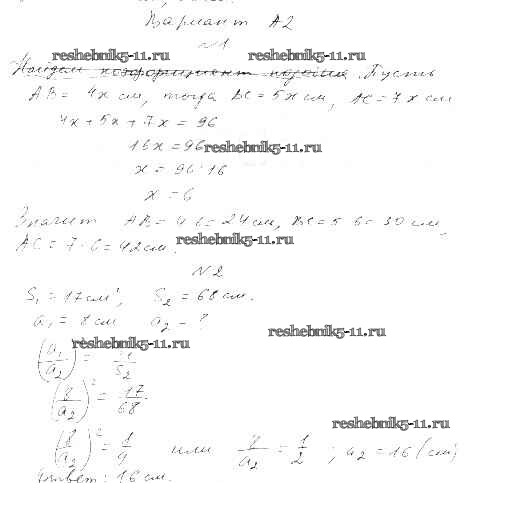 Вариант А2
№1
reshebnik5-11.ru reshebnik5-11.ru
Найдем коэффициент Пусть
AB = 4x см, тогда BC = 5x см, AC = 7x см
4x + 5x + 7x = 96
16x = 96 reshebnik5-11.ru
x = 96 : 16
x = 6
Значит AB = 4·6 = 24 см, BC = 5·6 = 30 см,
AC = 7·6 = 42 см. reshebnik5-11.ru
№2
S₁ = 17 см², S₂ = 68 см.
a₁ = 8 см a₂ - ?
reshebnik5-11.ru
reshebnik5-11.ru
(a₁/a₂)² = S₁/S₂
(8/a₂)² = 17/68
reshebnik5-11.ru
(8/a₂)² = 1/4 или 8/a₂ = 1/2 ; a₂ = 16 (см)
Ответ: 16 см.